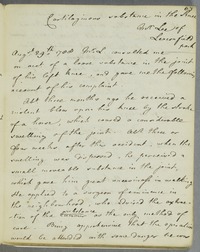 Cartilaginous substance in the Knee
Mr Lee, of
park
Augt 29th consulted me
on acct of a loose substance in the joint
of his left knee, and gave me the following
account of his complaint.
Abt three months ago he received a
violent blow upon his knee by the stroke
of a horse, which caused a considerable
swelling of the joint. Abt three or
four weeks after this accident, when the
swelling was dispersed, he perceived a
small moveable substance in the joint,
which gave him great uneasiness in walking.
He applied to a surgeon of eminence in
the neighbourhood, who advised the extrac-
tion of the substance as the only method of
cure. Being apprehensive that the operation
would be attended with some danger, he was